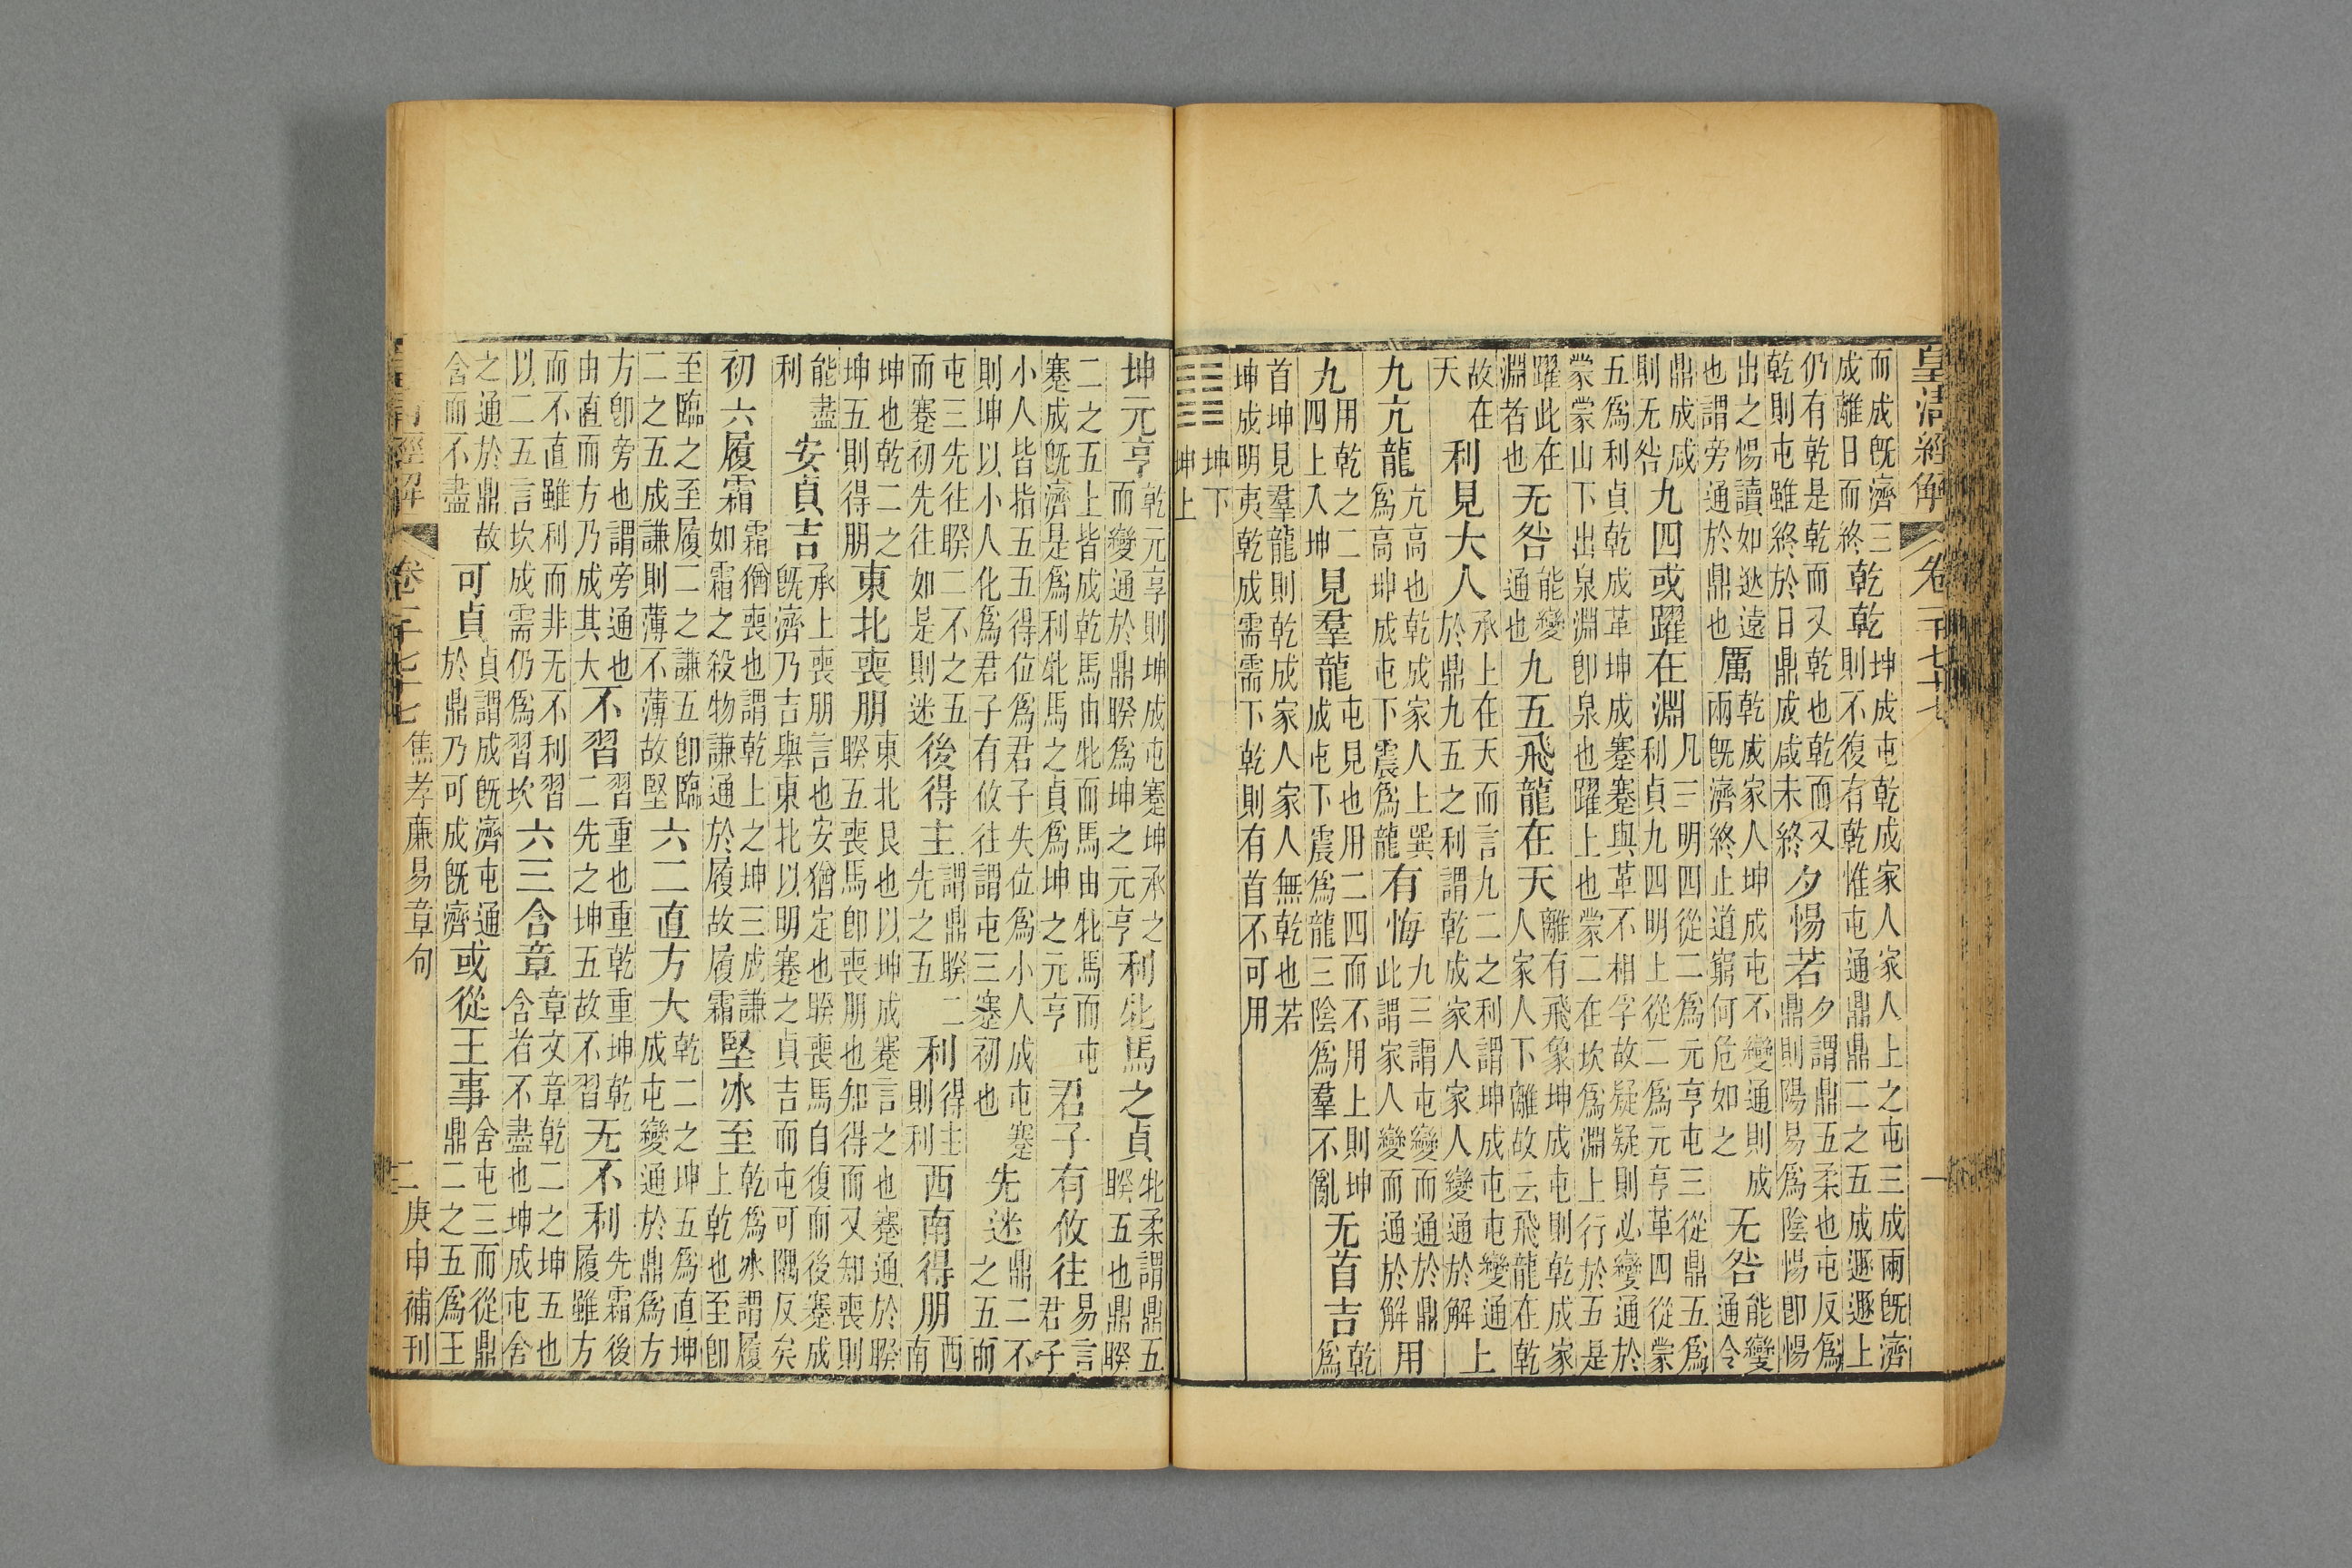 皇清經解 卷一千七十七 一
而成既濟三成離日而終乾乾坤成屯乾成家人家人上之屯三成兩既濟則不復有乾惟屯通鼎鼎二之五成遯遯上
仍有乾是乾而又乾也乾而又乾則屯雖終於日鼎成咸未終夕惕若夕謂鼎五柔也屯反爲鼎則陽易爲陰惕即惕
出之惕讀如逖遠也謂旁通於鼎也厲乾成家人坤成屯不變通則成兩既濟終止道窮何危如之无咎能變通令
鼎成咸則无咎九四或躍在淵凡三明四從二爲元亨屯三從鼎五爲利貞九四明上從二爲元亨革四從蒙
五爲利貞乾成革坤成蹇蹇與革不相孚故疑疑則必變通於蒙蒙山下出泉淵卽泉也躍上也蒙二在坎爲淵上行於五是
躍此在淵者也无咎能變通也九五飛龍在天離有飛象坤成屯則乾成家人家人下離故云飛龍在乾
故在天利見大人承上在天而言九二之利謂坤成屯屯變通於鼎九五之利謂乾成家人家人變通於解上
九亢龍亢高也乾成家人上巽爲高坤成屯下震爲龍有悔九三謂屯變而通於鼎此謂家人變而通於解用
九用乾之二四上入坤見羣龍屯見也用二四而不用上則坤成屯下震爲龍三陰爲羣不亂无首吉乾爲
首坤見羣龍則乾成家人家人無乾也若坤成明夷乾成需需下乾則有首不可用
坤下坤上
坤元亨乾元享則坤成屯蹇坤承之而變通於鼎睽爲坤之元亨利牝馬之貞牝柔謂鼎五睽五也鼎睽
二之五上皆成乾馬由牝而馬由牝馬而屯蹇成既濟是爲利牝馬之貞爲坤之元亨君子有攸往易言君子
小人皆指五五得位爲君子失位爲小人成屯蹇則坤以小人化爲君子有攸往謂屯三蹇初也先迷鼎二不之五而
屯三先往睽二不之五而蹇初先往如是則迷後得主謂鼎睽二先之五利得主則利西南得朋西南
坤也乾二之坤五則得朋東北喪朋東北艮也以坤成蹇言之也蹇通於睽睽五喪馬卽喪朋也知得而又知喪則
能盡利安貞吉承上喪朋言也安猶定也睽喪馬自復而後蹇成既濟乃吉舉東北以明蹇之貞吉而屯可隅反矣
初六履霜霜猶喪也謂乾上之坤三成謙如霜之殺物謙通於履故履霜堅冰至乾爲冰謂履上乾也至卽
至臨之至履二之謙五卽臨二之五成謙則薄不薄故堅六二直方大乾二之坤五爲直坤成屯變通於鼎爲方
方卽旁也謂旁通也由直而方乃成其大不習習重也重乾重坤乾二先之坤五故不習无不利先霜後履雖方
而不直雖利而非无不利習以二五言坎成需仍爲習坎六三含章章文章乾二之坤五也含若不盡也坤成屯舍
之通於鼎故含而不盡可貞貞謂成既濟屯通於鼎乃可成既濟或從王事舍屯三而從鼎鼎二之五爲王
皇清經解 卷一千七十七 焦孝廉易章句 二 庚申補刊